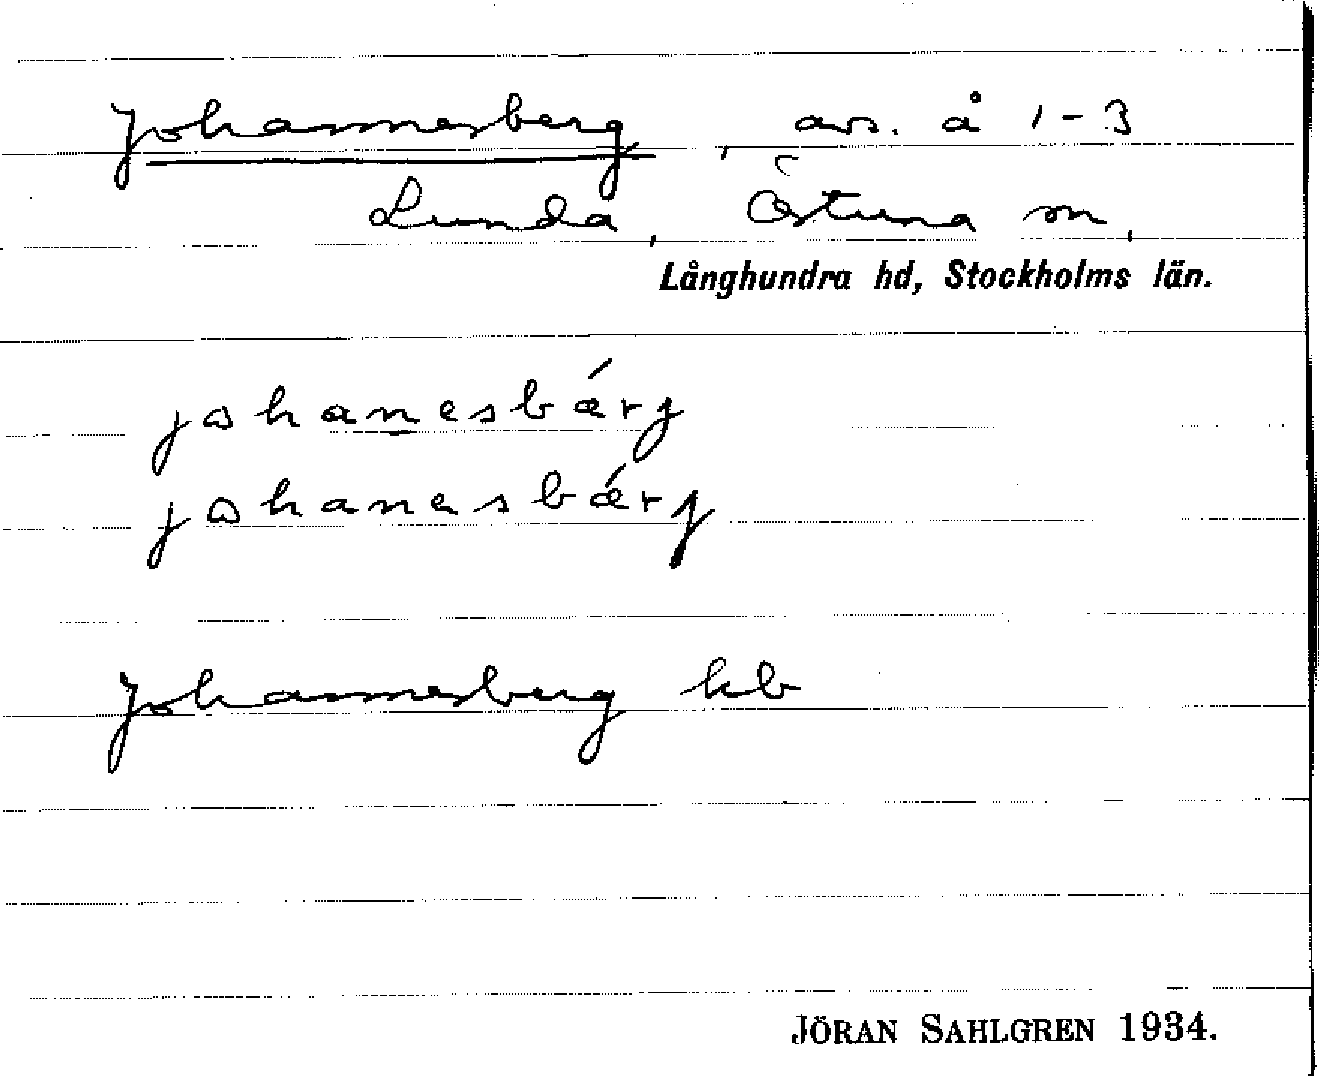 Johannesberg, avs. å 1-3
Lunda, Östuna sn,
Långhundra hd, Stockholms län.
johanesbǽrj
johanesbǽrj
Johannesberg kb
JÖRAN SAHLGREN 1934.